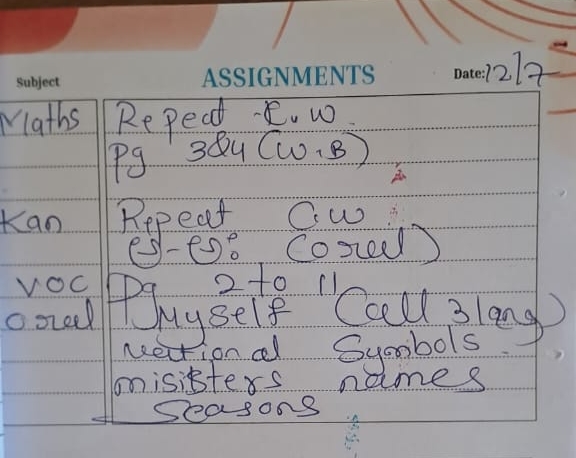 Subject ASSIGNMENTS Date: 12/7
Maths Repeat C.W.
Pg 3&4 (W.B)
Kan Repeat C.W
ಅ-ಅಃ (oral)
VOC Pg 2 to 11
oral Myself (all 3 lang)
national Symbols
misisters names
Seasons